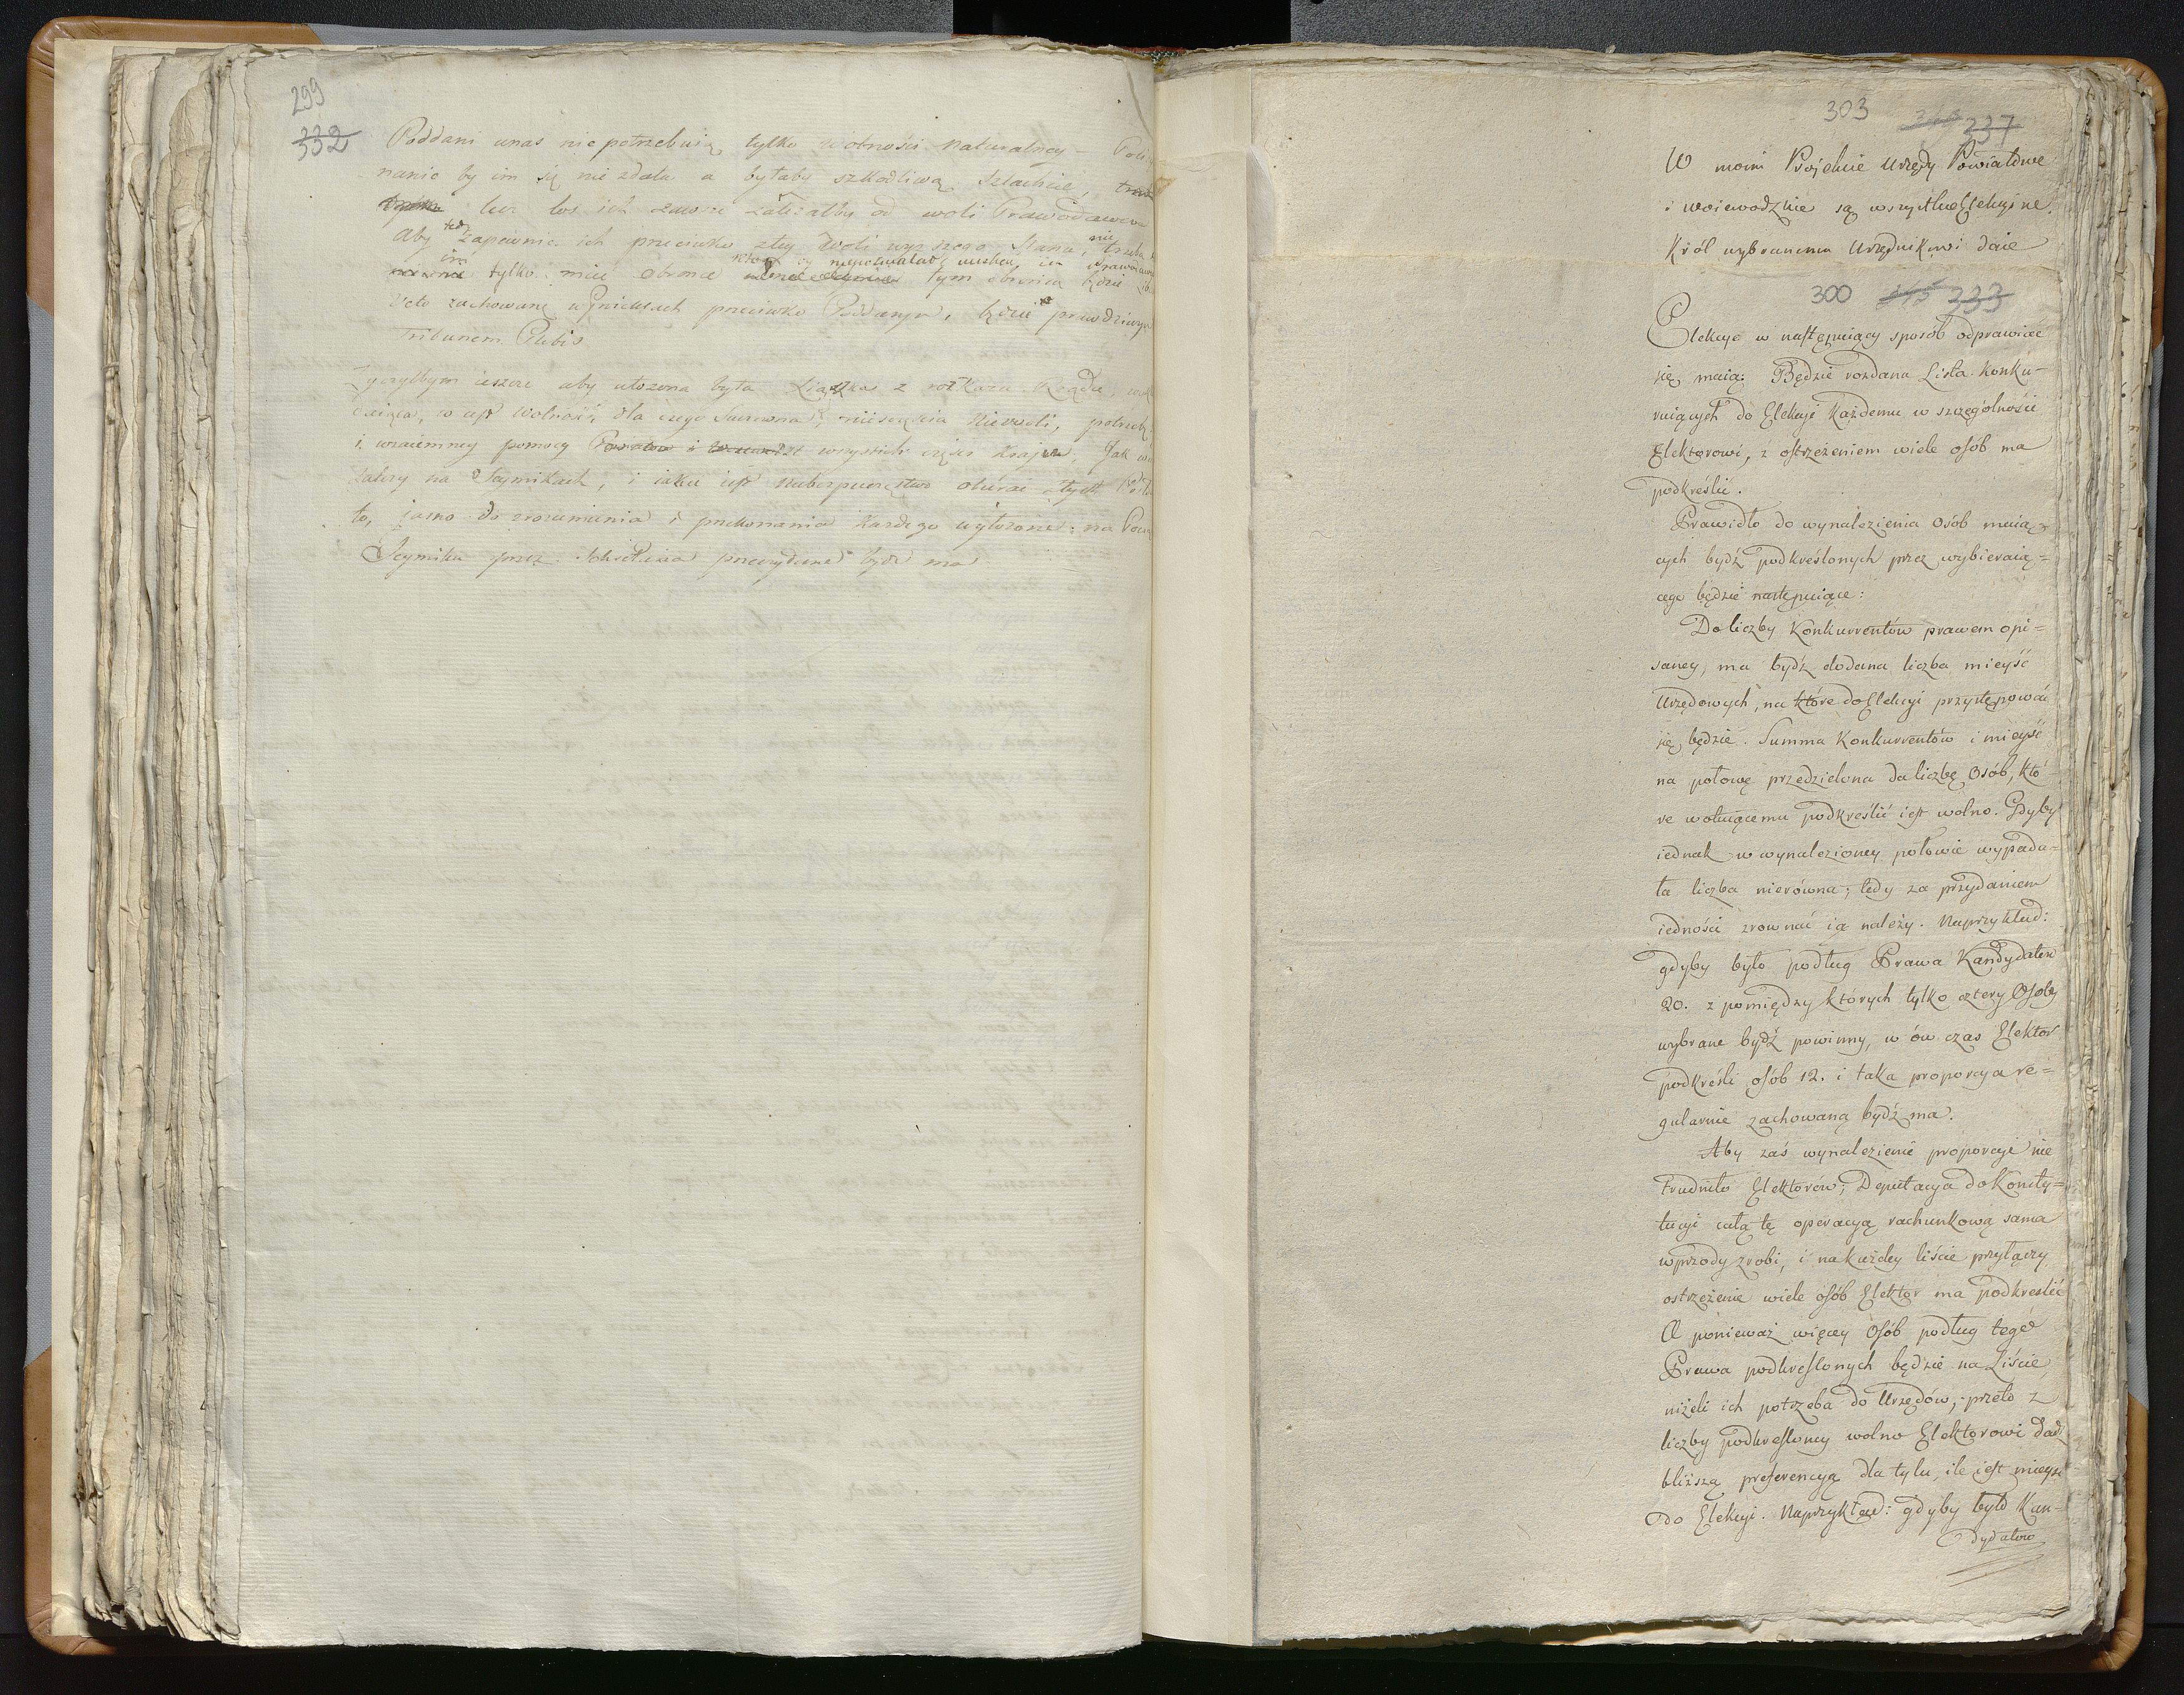 299
332
Poddani unas nie potrzebuią, tylko wolności naturalney –
nanie by im się nie zdała a byłaby szkodliwą Szlachcie,
lecz los ich zawsze zależałby od woli Prawodawców
Aby tedy zapewnić ich przeciwko złey woli wyższego Stanu, nie trzeba
im tylko mieć obrońcę tym obrońcą będzie
Veto zachowane w przeciwko Poddanym, będzie prawdziwym
Tribunem Plebis
Życzyłbym ieszcze aby ułożona była Xiążka z rozkazu Rządu,
co iest Wolność, dla czego niewoli,
i wzaiemney pomocy wszystkich części Kraju, Jak
zależy na Seymikach, i iakie iest niebezpieczeństwo obierać złych
to, jasno do zrozumienia i przekonania każdego wyłożone: na
Seymiku przez przeczytane bydź ma
303 237
W moim Projekcie Urzędy Powiatowe
i woiewodzkie są wszystkie Elekcyine.
Król wybranemu Urzędnikowi daie
300 315 233
Elekcye w następuiący sposób odprawiać
się maią: Będzie rozdana Lista Konku-
ruiących do Elekcyi każdemu w szczególności
Elektorowi, z ostrzeżeniem wiele osób ma
podkreślić.
Prawidło do wynalezienia osób maią-
cych bydź podkreślonych przez wybieraią=
cego będzie następuiące:
Do liczby Konkurrentów prawem opi=
saney, ma bydź dodana liczba mieysc
Urzędowych, na które do Elekcyi przystępować
się będzie. Summa Konkurrentów i mieysc
na połowę przedzielona da liczbę Osób, któ
re wotuiącemu podkreślić iest wolno. Gdyby
iednak w wynalezioney połowie wypada=
ła liczba nierówna; tedy za przydaniem
iedności zrownać ią należy. Naprzykład:
gdyby było podług Prawa Kandydatów
20. z pomiędzy których tylko cztery Osoby
wybrane bydź powinny, w ów czas Elektor
podkreśli osób 12. i taka proporcya re=
gularnie zachowaną bydź ma.
Aby zaś wynalezienie proporcyi nie
trudniło Elektorów; Deputacya do Konsty=
tucyi całą tę operacyą rachunkową sama
wprzody zrobi, i na każdey liście przyłączy
ostrzeżenie wiele osób Elektor ma podkreślić
A ponieważ więcey Osób podług tego
Prawa podkreślonych będzie na Liście,
niżeli ich potrzeba do Urzędów, przeto z
liczby podkreśloney wolno Elektorowi dać
bliższą preferencyą dla tylu, ile iest mieysc
do Elekcyi. Naprzykład: gdyby było Kan-
dydatów